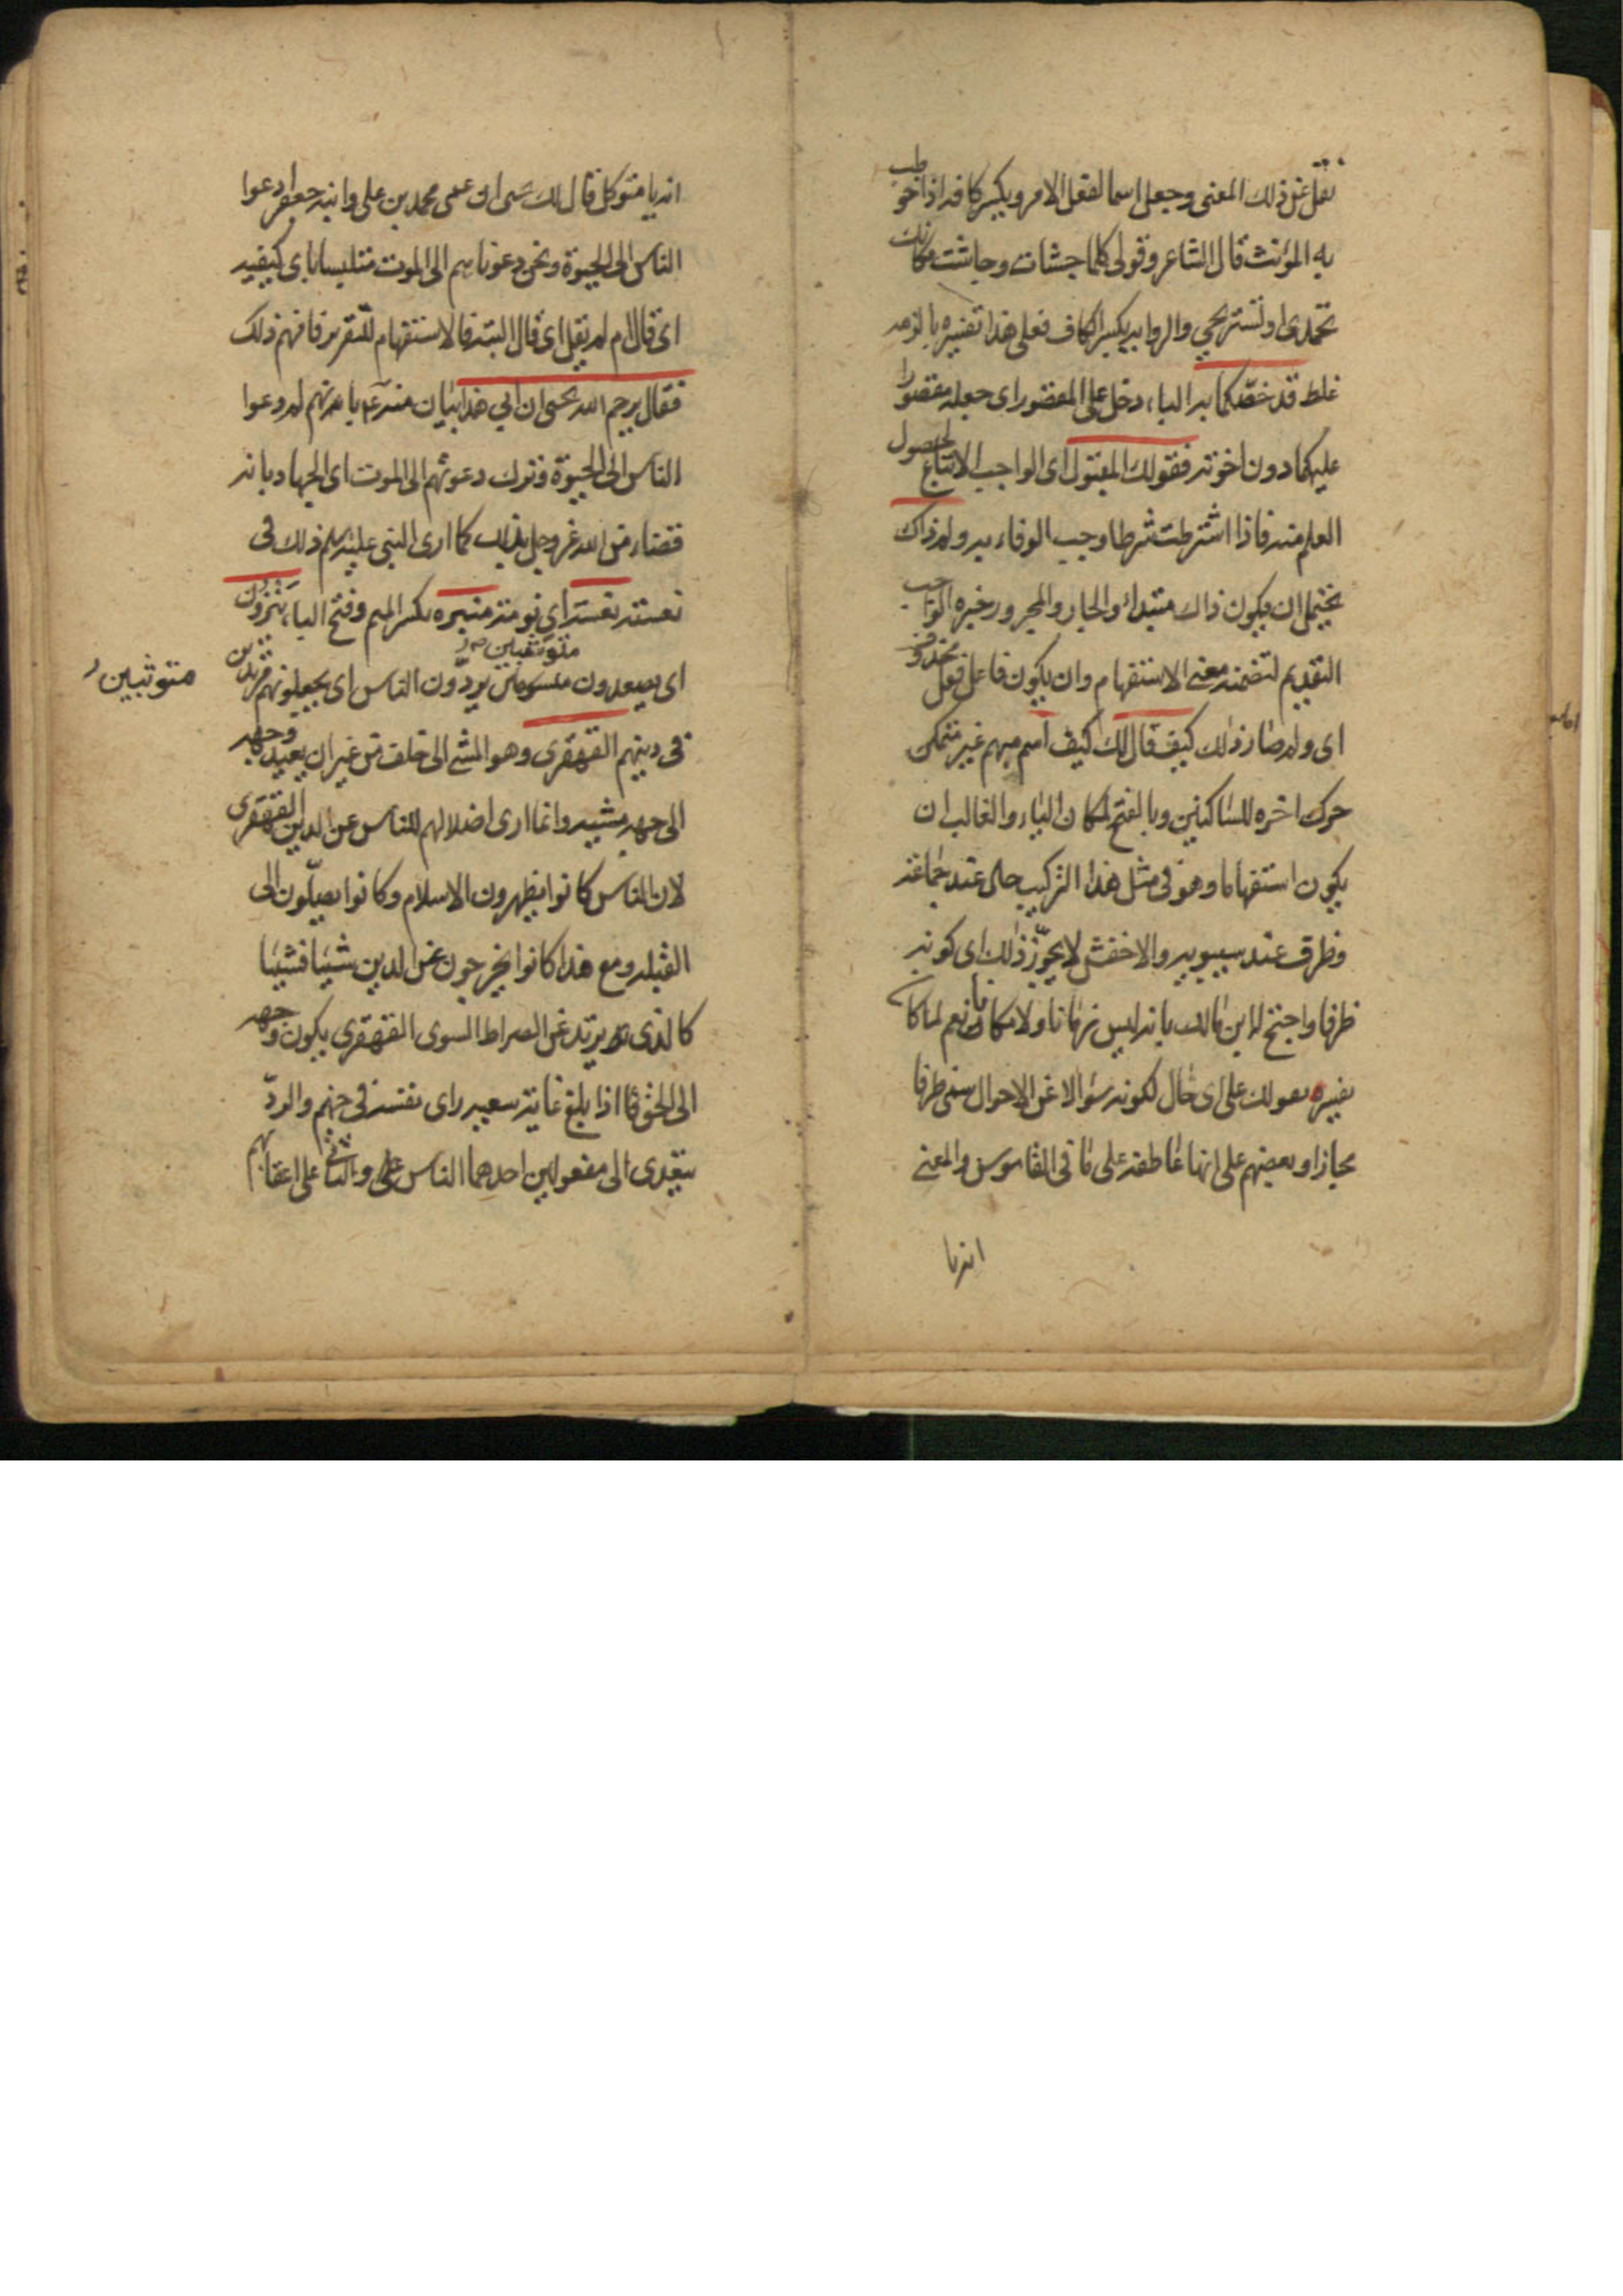 نقل عن ذلك المعنى وجعل اسما لفعل الامر ويكسر كافه اذا خوطب
به المؤنث قال الشاعر وقولى كلما جشات وجاشت مكانك
تحمدى او تستريحي والرواية بكسر الكاف فعلى هذا تفسيره بالزمه
غلط قد خصكما به الباء دخل على المقصور اى جعله مقصورا
عليكما دون اخوته فقولك المقبول اى الواجب الاتباع لحصول
العلم منه فاذا اشترطت شرطا وجب الوفاء به ولم ذاك
يحتمل ان يكون ذاك مبتداء والجار والمجرور خبره الواجب
التقديم لتضمنه معنى الاستفهام وان يكون فاعل فعل محذوف
اى ولم صار ذلك كيف قال لك كيف اسم مبهم غير متمكن
حرك اخره للساكنين وبالفتح لمكان الياء والغالب ان
يكون استفهاما وهو فى مثل هذا التركيب حال عند جماعة
وظرف عند سيبويه والاخفش لا يجوّز ذلك اى كونه
ظرفا واحتج له ابن مالك بانه ليس زمانا ولا مكانا نعم لما كان
يفسره بقولك على اى حال لكونه سؤالا عن الاحوال سمى ظرفا
مجازا وبعضهم على انها عاطفة على ما فى القاموس والمعنى
انه يا
انه يا متوكل قال لك يحيى ان عمى محمد بن على وابنه جعفرا دعوا
الناس الى الحيوة ونحن دعوناهم الى الموت متلبسا باى كيفية
اى قال ام لم يقل اى قال البتة فالاستفهام للتقرير فافهم ذلك
فقال يرحم الله يحيى ان ابى هذا بيان منه ع بانهم لم دعوا
الناس الى الحيوة وترك دعوتهم الى الموت اى الجهاد بانه
قضاء من الله عز وجل بذلك كما ارى النبى عليه السلم ذلك فى
نعسته نعسة اى نومة منبره بكسر الميم وفتح الباء ينزون
اى يصعدون متوثبين يردّون الناس اى يجعلونهم مرتدين
متوثبين
فى دينهم القهقرى وهو المشى الى خلف من غير ان يعيد وجهه
الى جهة مشيه وانما ارى اضلالهم للناس عن الدين القهقرى
لان الناس كانوا يظهرون الاسلام وكانوا يصلّون الى
القبلة ومع هذا كانوا يخرجون عن الدين شيئا فشيئا
كالذى يرتد عن الصراط السوى القهقرى يكون وجهه
الى الحق فاذا بلغ غاية سعيه راى نفسه فى جهنم والردّ
يتعدى الى مفعولين احدهما الناس والثانى على اعقابهم